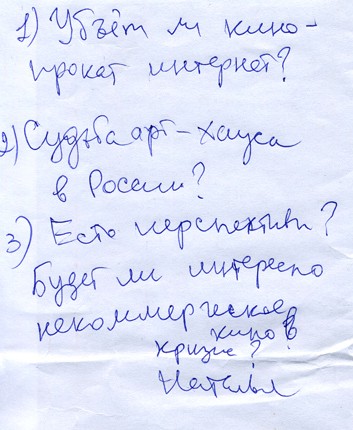 1) Убъёт ли кино-
прокат интернет?
2) Судьба арт-хауса
в России?
3) Есть перспективы?
Будет ли интересно
некоммерческое
кино в
кризис?
Наталья